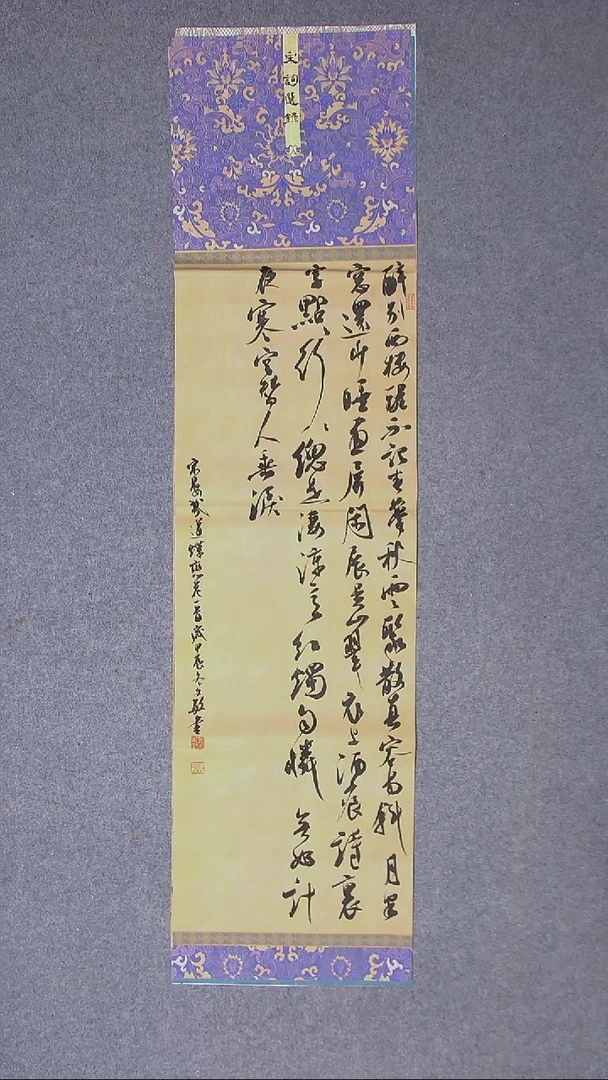 宋詞選錄
醉別西樓醒不記春夢秋雲聚散真容易斜月半
窗還少睡畫屏閑展吳山翠衣上酒痕詩裏
字點、行、總是淒涼意紅燭自憐無好計
夜寒空替人垂淚
宋晏幾道蝶戀花一首歲甲辰冬文敏書